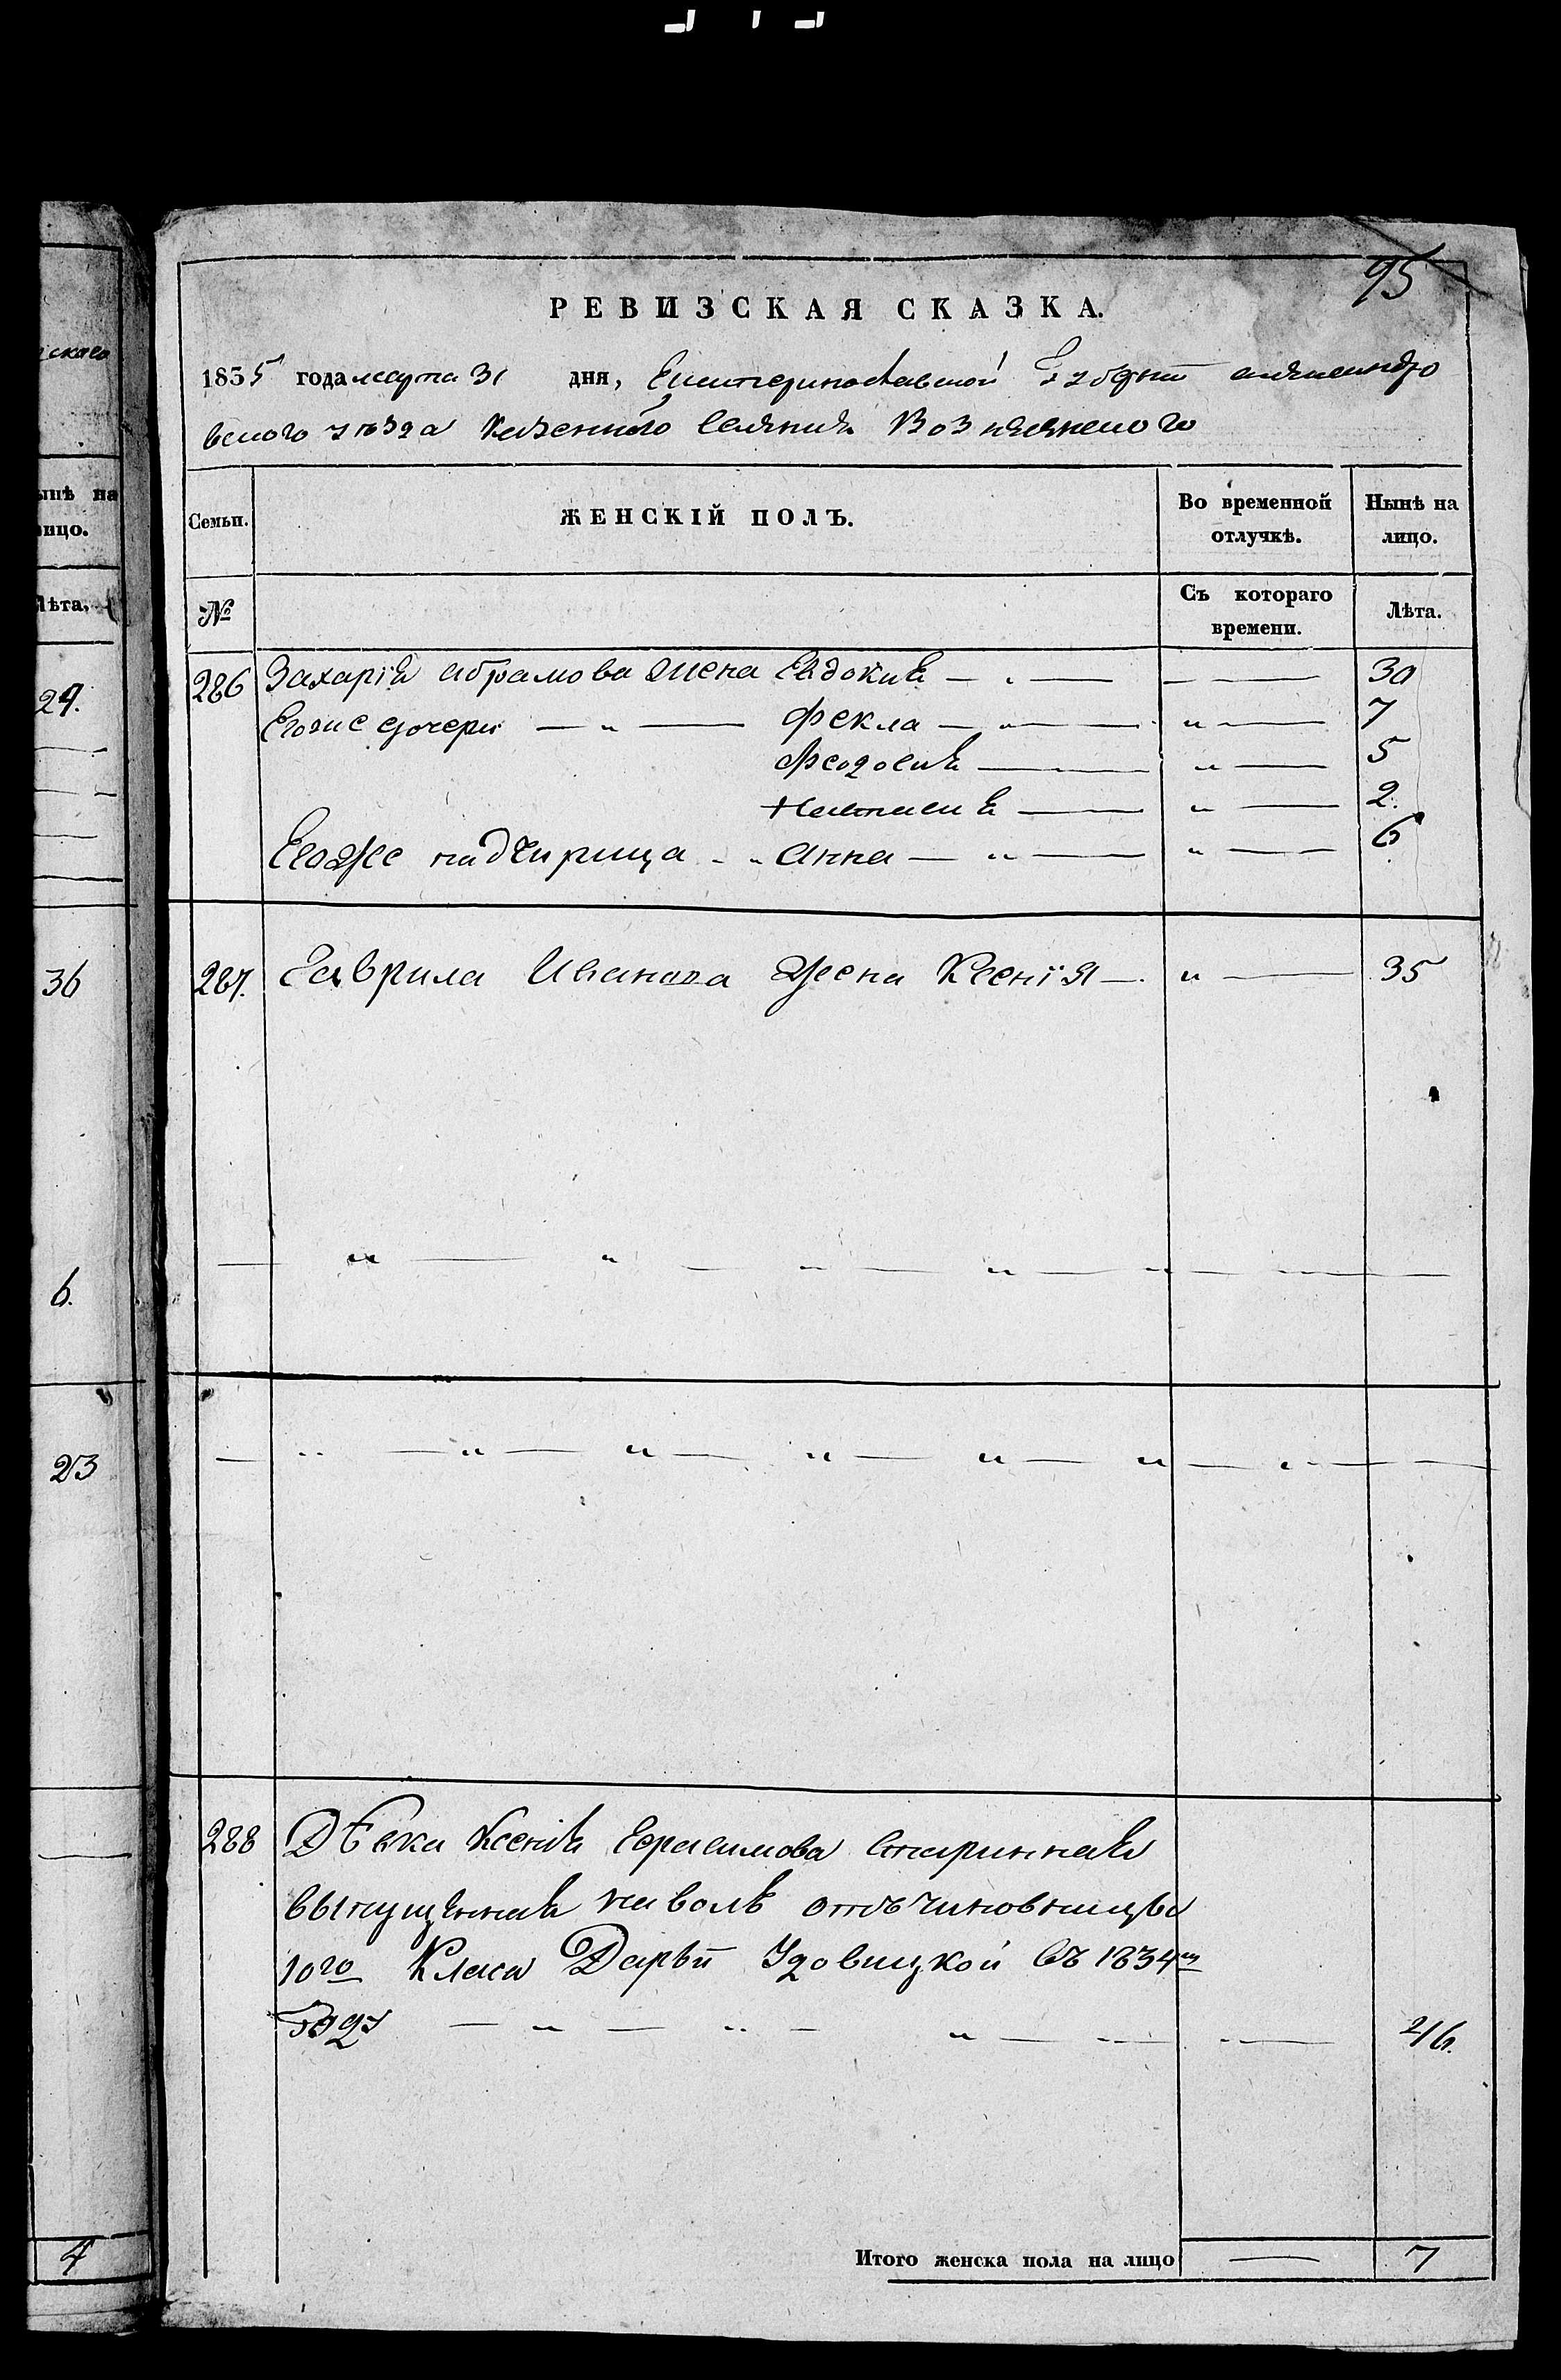 скаго
ынѣ на
ицо.
Лѣта.
29.
36
6.
23
4
95
РЕВИЗСКАЯ СКАЗКА.
1835 года марта 31 дня, Екатеринославской Губерніи александро
вского уѣзда Казенного селения Вознесенского
Семьи. ЖЕНСКІЙ ПОЛЪ. Во временной отлучкѣ. Нынѣ на лицо.
№ Съ котораго времени. Лѣта.
286 Захарія Абрамова жена Евдокия — „ — — — 30
Егоже дочери — „ — Фекла — „ — „ — 7
Феодосия — „ — 5
Настасия — „ — 2.
Егоже падчирица - „ Анна — „ — „ — 6
287. Гаврила Иванова жена Ксенія — „ — 35
— „ — „ — „ — „ — „ — „ —
— „ — „ — „ — „ — „ — „ — „ —
288 Дѣвка Ксения Герасимова
выпущенная наволю отъ чиновницы
10го Класа Дарьи Удовицкой въ 1834м
Году — „ — „ — „ — — — 46.
Итого женска пола на лицо — 7